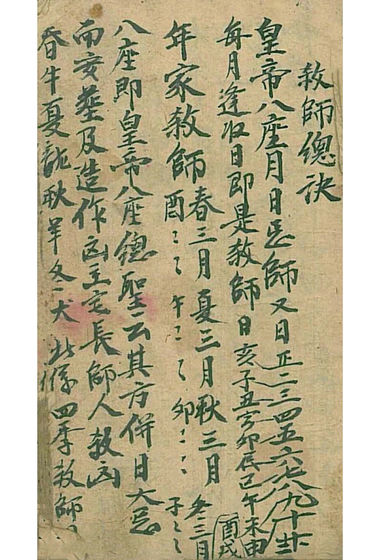 教師總訣
皇帝八座月日忌師又日正二三四五六七八九十
每月逢收日即是教師日亥子丑寅卯辰巳午未申酉戌
年家教師春三月夏三月秋三月冬三月
酉〻〻午〻〻卯〻〻子〻〻
八座即皇帝八座總聖云其方併日大忌
安葬及造作凶主亡長師人教凶
春牛夏龍秋羊冬犬 四季教師